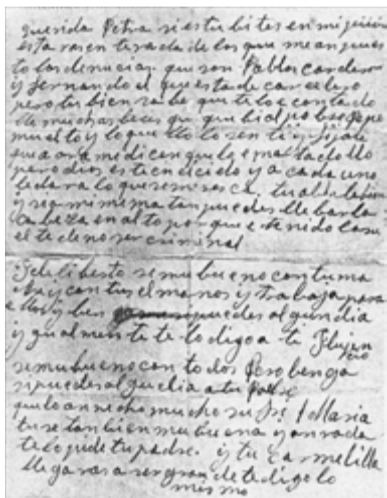 querida Petra si estubites en mi juicio
estaras en terada de los que mean pues
to las denucias que son Pablos cordero
y fernando el que esta de carcelero
pero tu bien sabe que te lo e contado
de muchas beces que
muelto y lo que llo lo sen ti fijate
que aora me dicen que lo e matado llo
pero dios esta en el cielo y a cada uno
le dara lo que meresca. tu
y sea mi mema tan puedes lle barla
cabeza en alto porque e tenido la su
elte de no ser criminal
Felilberto se mu bueno con tu ma
dre y con tus elmanos y trabaja para
ellos y ben puedes algun dia
y gual mente te lo digo a ti Florencio
se mu bueno con todos Pero benga
si puedes algun dia a tu Padre
que lo an hecho mucho su frir Maria
tu se tan bien mu buena y onrada
te lo pide tu padre. y tu carmelilla
llegaras a ser grande te digo lo
mismo